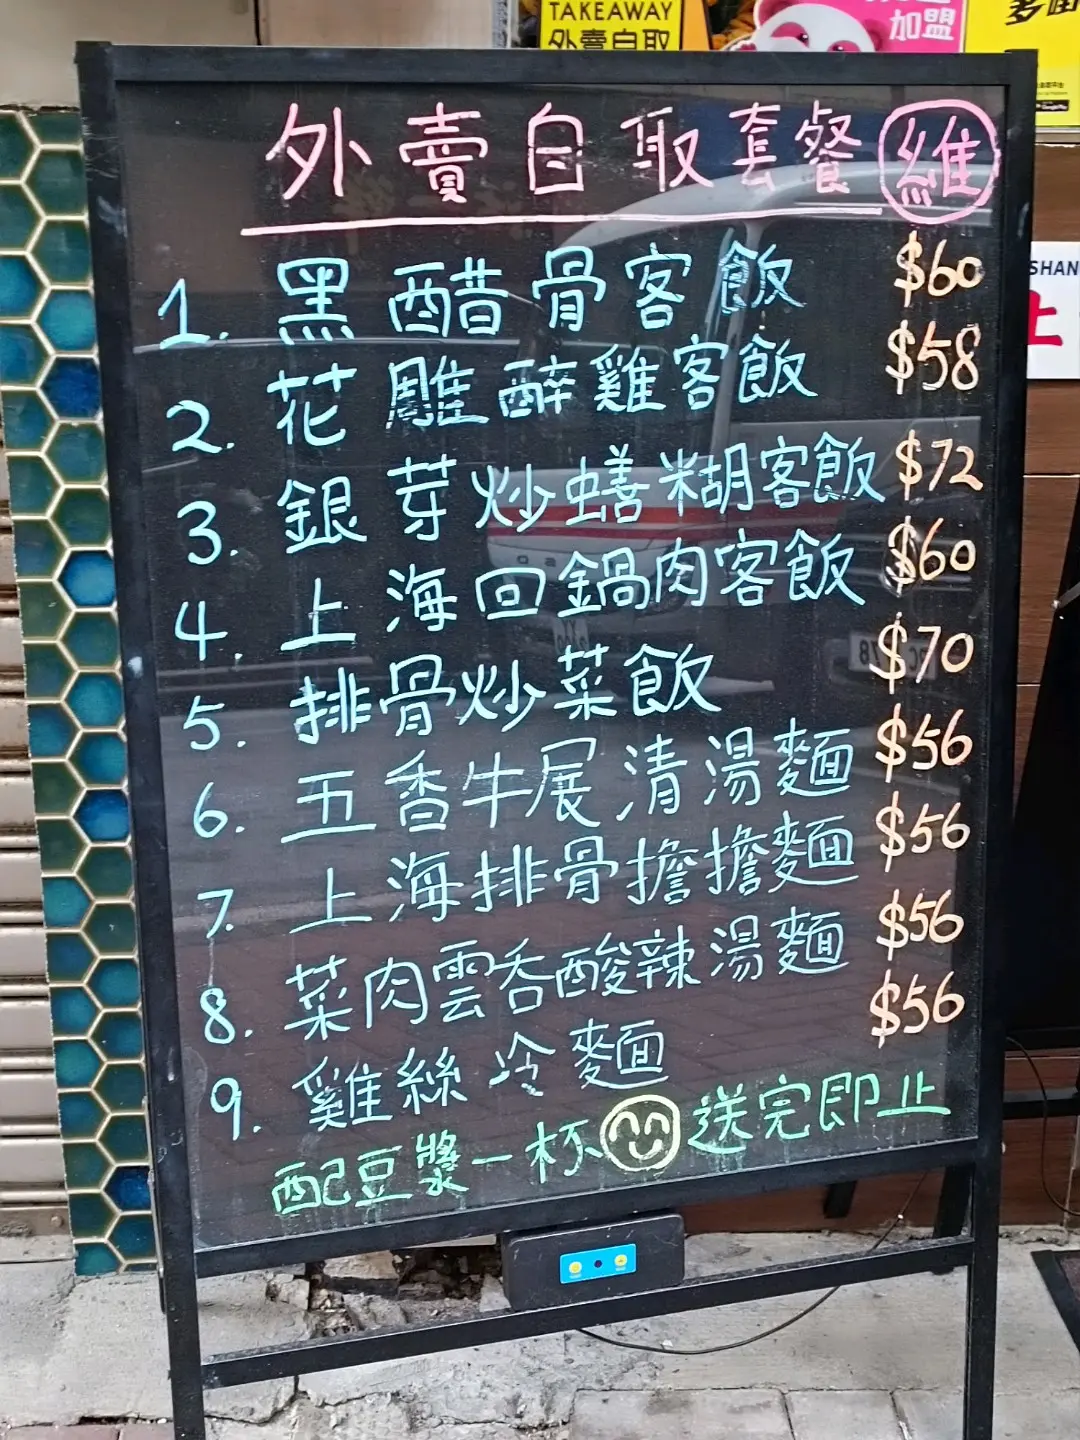 TAKEAWAY
外賣自取
加盟
外賣自取套餐 維
1. 黑醋骨客飯 $60
2. 花雕醉雞客飯 $58
3. 銀芽炒蟮糊客飯 $72
4. 上海回鍋肉客飯 $60
5. 排骨炒菜飯 $70
6. 五香牛展清湯麵 $56
7. 上海排骨擔擔麵 $56
8. 菜肉雲呑酸辣湯麵 $56
9. 雞絲冷麵 $56
配豆漿一杯 送完即止
SHAN
上